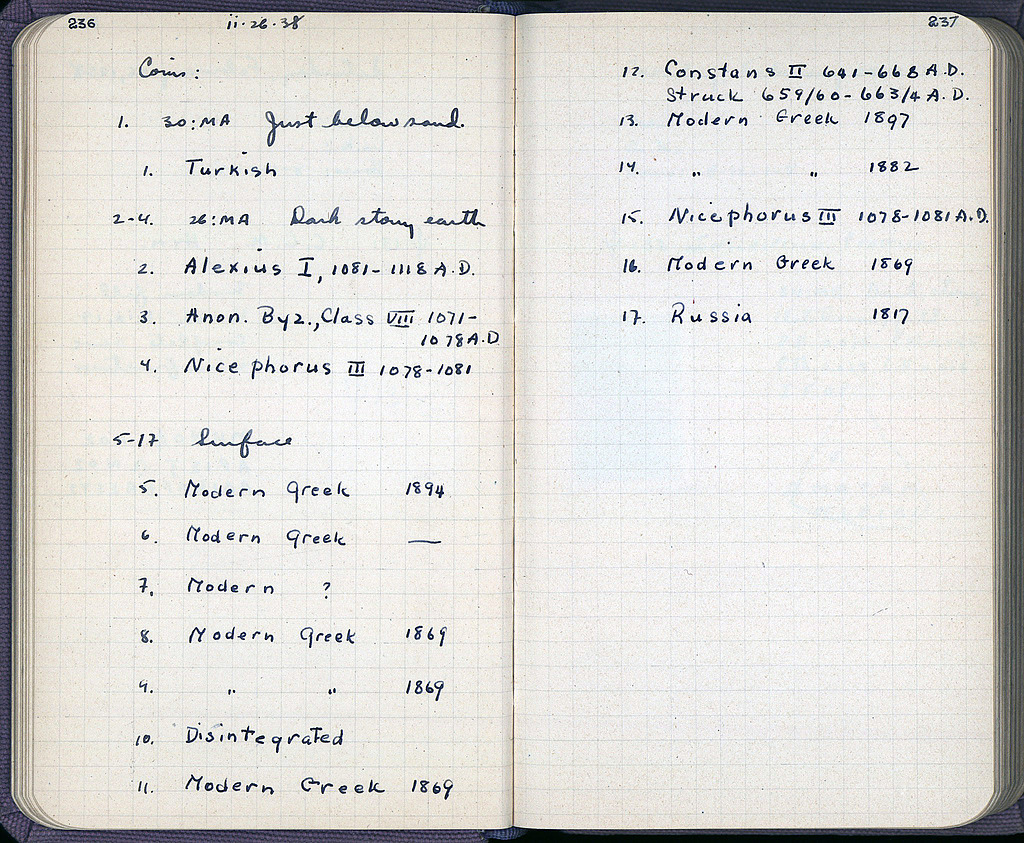 236
ii·26·38
Coins:
1. 30:MA Just below sand.
1. Turkish
2-4. 26:MA Dark stony earth
2. Alexius I, 1081-1118 A.D.
3. Anon. Byz., Class VIII 1071-
1078 A.D
4. Nicephorus III 1078-1081
5-17 Surface
5. Modern Greek 1894
6. Modern Greek —
7. Modern ?
8. Modern Greek 1869
9. " " 1869
10. Disintegrated
11. Modern Greek 1869
237
12. Constans II 641-668 A.D.
Struck 659/60-663/4 A.D.
13. Modern Greek 1897
14. " " 1882
15. Nicephorus III 1078-1081 A.D.
16. Modern Greek 1869
17. Russia 1817